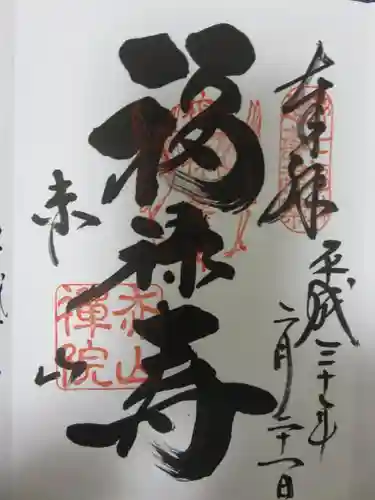 奉拝
平成三十年
二月二十一日
福禄寿
赤山
赤山
禅院